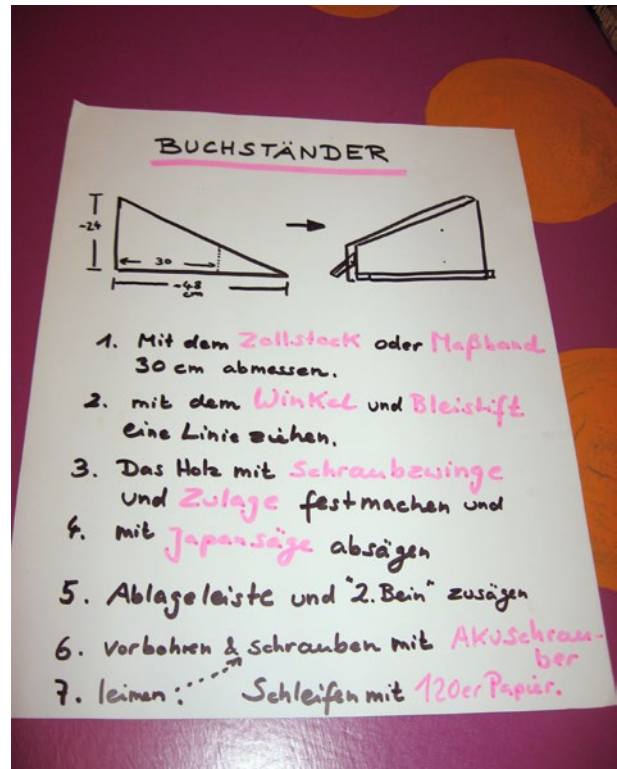 BUCHSTÄNDER
~24
30
~48
cm
1. Mit dem Zollstock oder Maßband
30 cm abmessen.
2. mit dem Winkel und Bleistift
eine Linie ziehen.
3. Das Holz mit Schraubzwinge
und Zulage festmachen und
4. mit Japansäge absägen
5. Ablageleiste und "2. Bein" zusägen
6. vorbohren & schrauben mit Akuschrau-
ber
7. leimen. Schleifen mit 120er Papier.